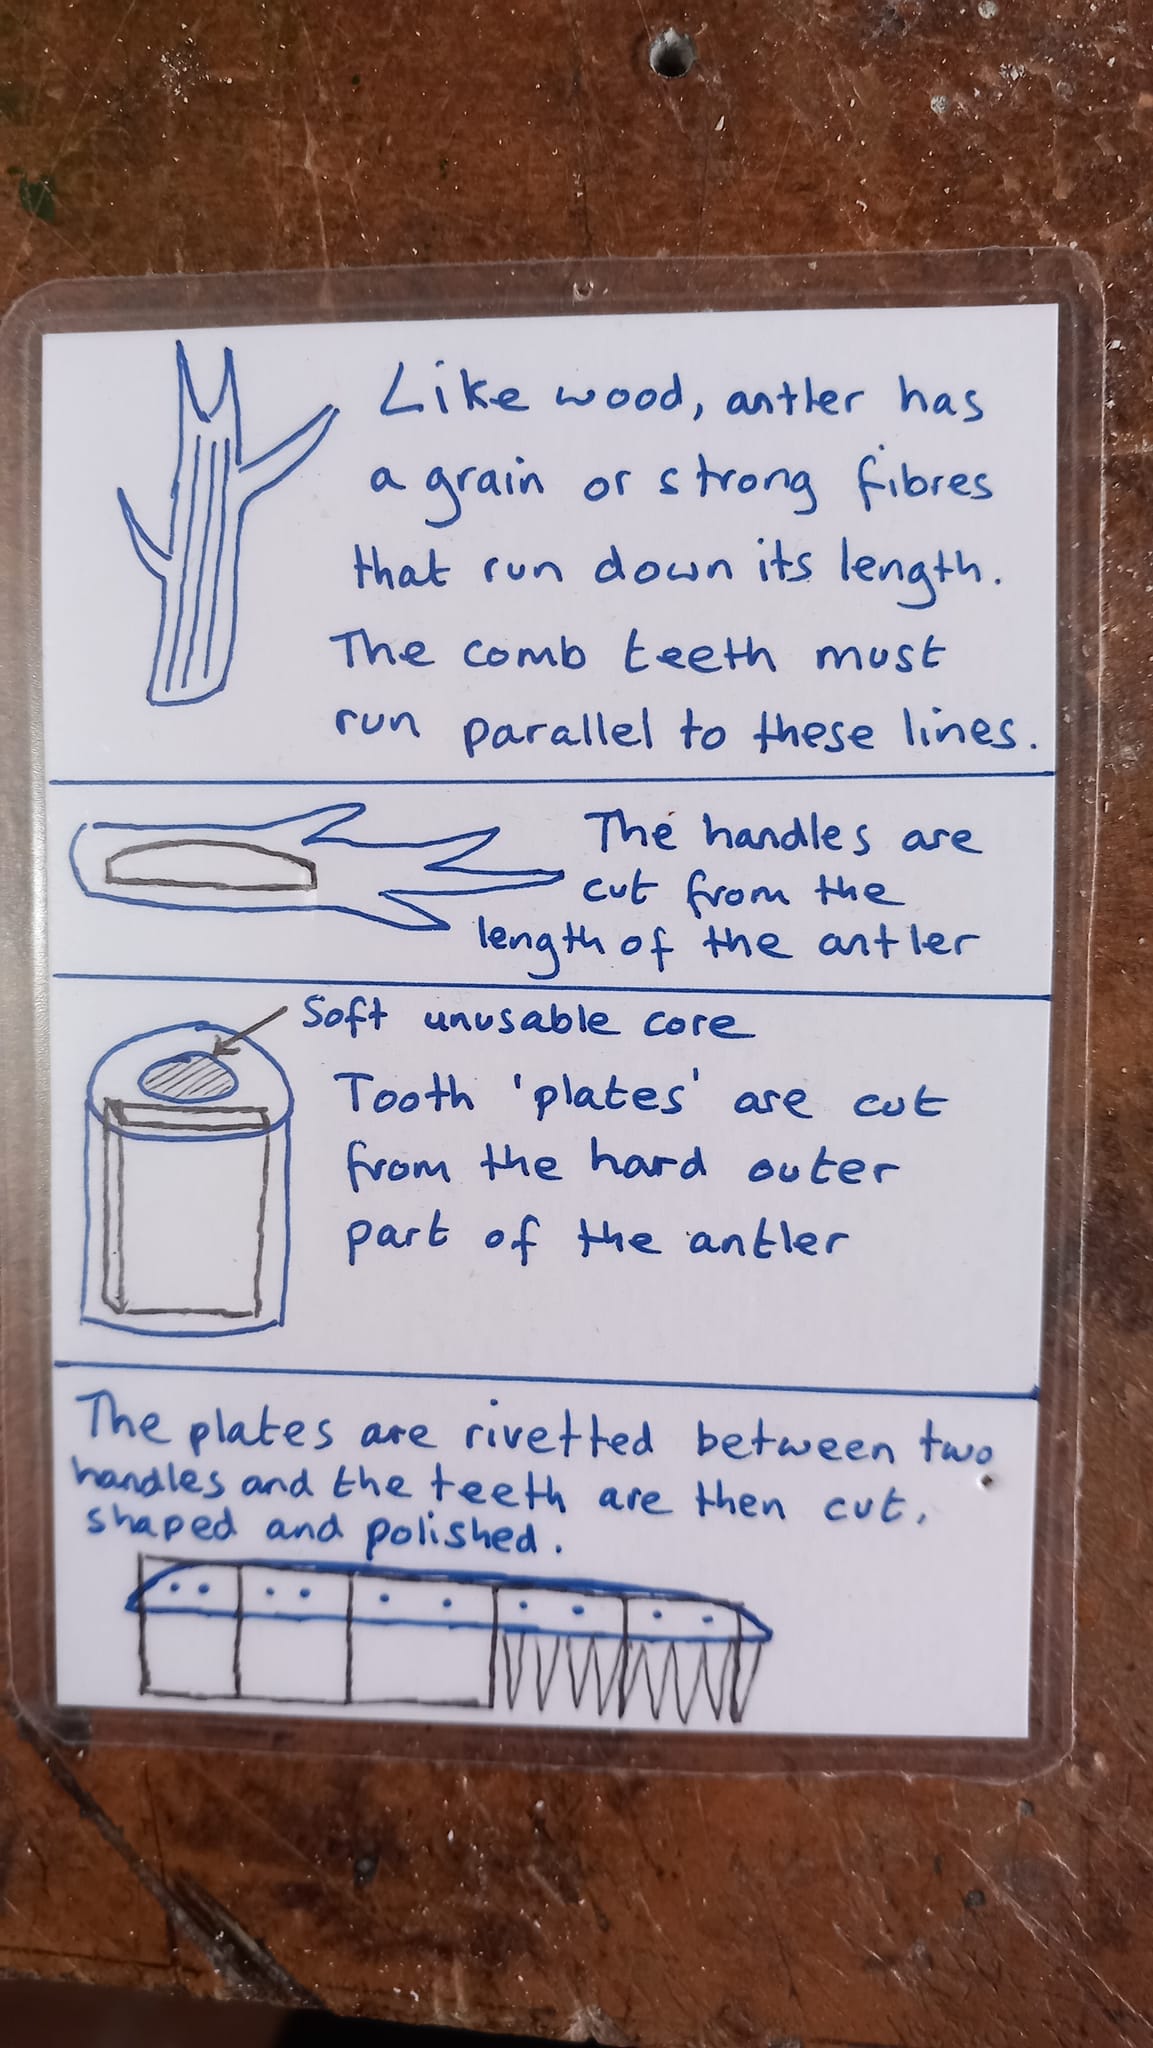 Like wood, antler has
a grain or strong fibres
that run down its length.
The comb teeth must
run parallel to these lines.
The handles are
cut from the
length of the antler
Soft unusable core
Tooth 'plates' are cut
from the hard outer
part of the antler
The plates are rivetted between two
handles and the teeth are then cut,
shaped and polished.